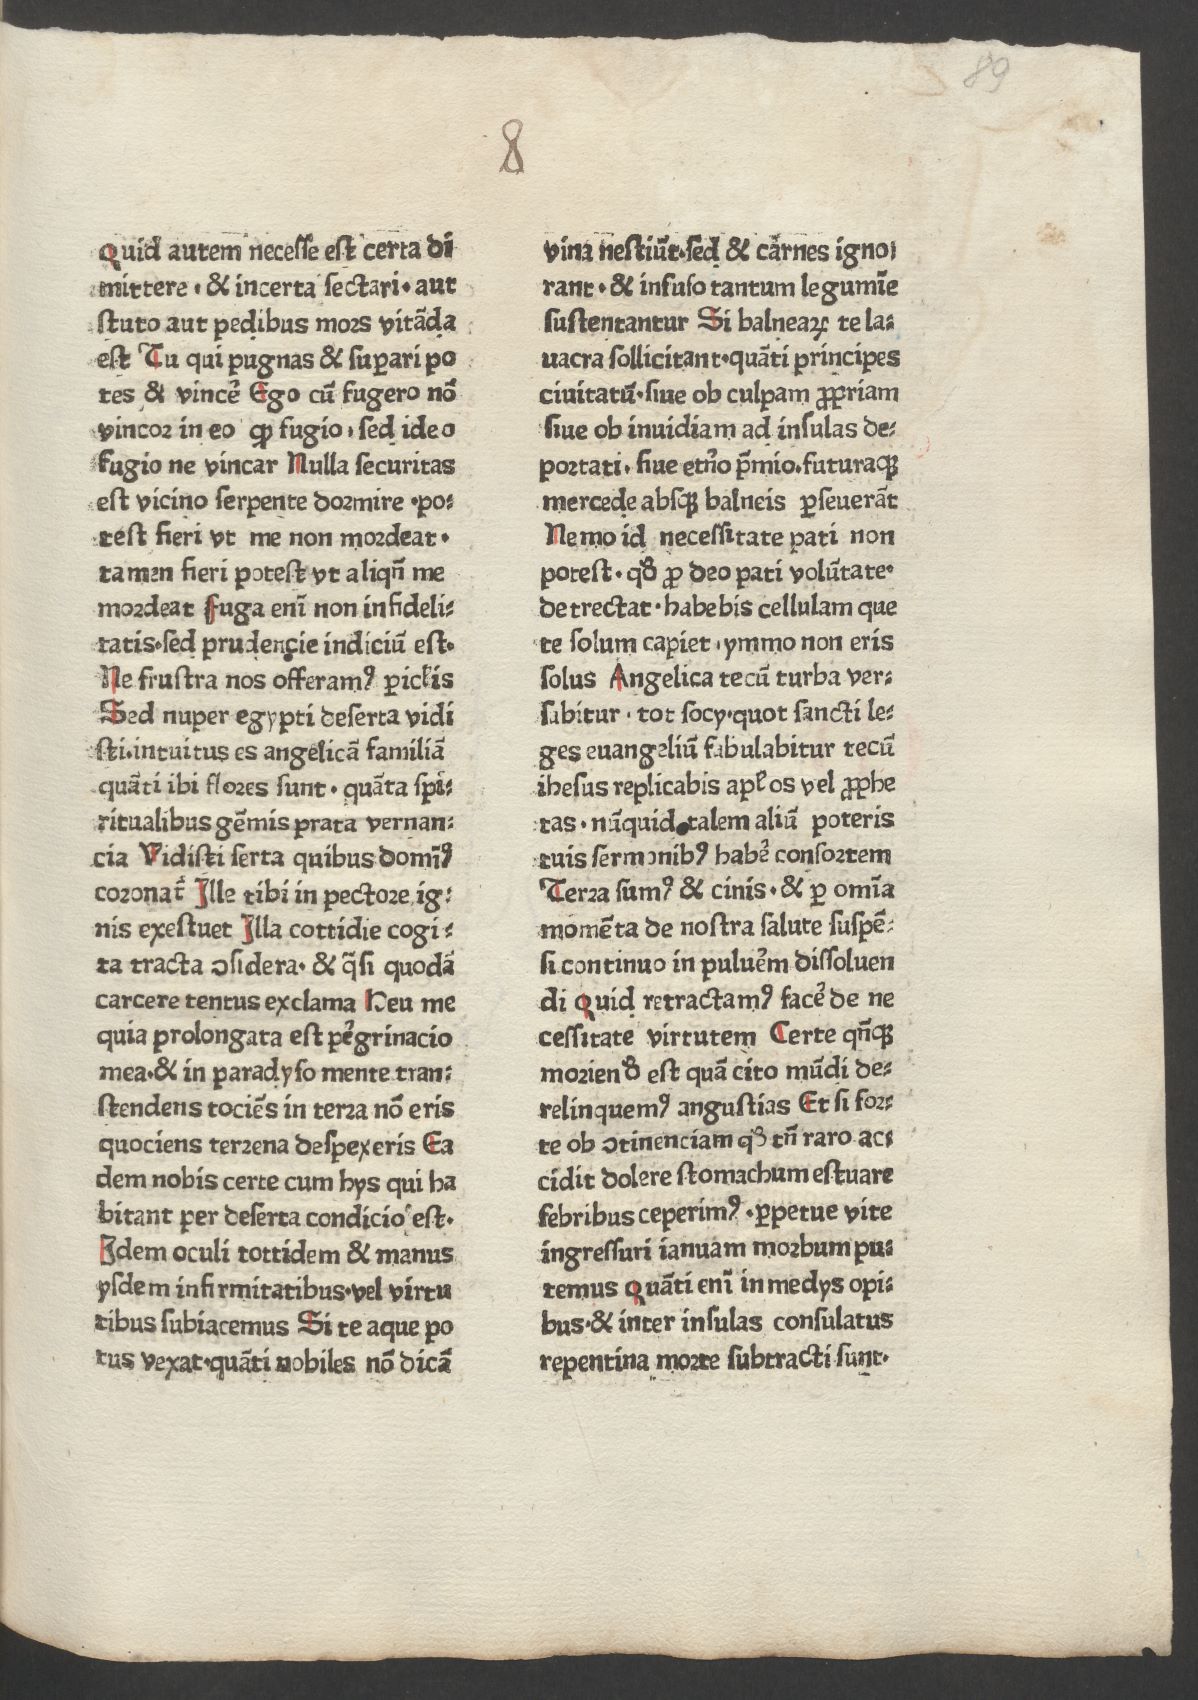 89
8
Quid autem necesse est certa di
mittere · & incerta sectari · aut
stuto aut pedibus mors vitãda
est Tu qui pugnas & supari po
tes & vincẽ Ego cũ fugero nõ
vincor in eo ꝙ fugio · sed ideo
fugio ne vincar Nulla securitas
est vicino serpente dormire · po⸗
test fieri vt me non mordeat ·
tamen fieri potest vt aliqñ me
mordeat Fuga enĩ non infideli⸗
tatis · sed prudencie indiciũ est ·
Ne frustra nos offeramꝰ piclis
Sed nuper egypti deserta vidi
sti · intuitus es angelicã familiã
quãti ibi flores sunt · quãta spi⸗
ritualibus gẽmis prata vernan⸗
cia Vidisti serta quibus domĩꝰ
coronat̃ Ille tibi in pectore ig⸗
nis exestuet Illa cottidie cogi⸗
ta tracta ꝯsidera · & q̃si quodã
carcere tentus exclama Heu me
quia prolongata est pẽgrinacio
mea · & in paradyso mente tran⸗
stendens tociẽs in terra nõ eris
quociens terrena despexeris Ea
dem nobis certe cum hys qui ha
bitant per deserta condicio est ·
Idem oculi tottidem & manus
ysdem infirmitatibus · vel virtu
tibus subiacemus Si te aque po
tus vexat · quãti nobiles nõ dicã
vina nestiũt · sed & carnes igno⸗
rant · & infuso tantum legumĩe
sustentantur Si balnearꝝ te la⸗
uacra sollicitant · quãti principes
ciuitatũ · siue ob culpam ꝓpriam
siue ob inuidiam ad insulas de⸗
portati · siue etño p̃mio · futuraqꝫ
mercede absqꝫ balneis ꝑseuerãt
Nemo id necessitate pati non
potest · qđ ꝓ deo pati volũtate ·
detrectat · habebis cellulam que
te solum capiet · ymmo non eris
solus Angelica tecũ turba ver⸗
sabitur · tot socy · quot sancti le⸗
ges euangeliũ fabulabitur tecũ
ihesus replicabis apłos vel ꝓphe
tas · nũquid talem aliũ poteris
tuis sermonibꝰ habẽ consortem
Terra sumꝰ & cinis · & ꝑ omĩa
momẽta de nostra salute suspẽ⸗
si continuo in puluẽm dissoluen
di Quid retractamꝰ facẽ de ne
cessitate virtutem Certe qñcqꝫ
moriend̃ est quã cito mũdi de⸗
relinquemꝰ angustias Et si for⸗
te ob ꝯtinenciam qđ tñ raro ac⸗
cidit dolere stomachum estuare
febribus ceperimꝰ · ꝑpetue vite
ingressuri ianuam morbum pu⸗
temus Quãti enĩ in medys opi⸗
bus · & inter insulas consulatus
repentina morte subtracti sunt ·